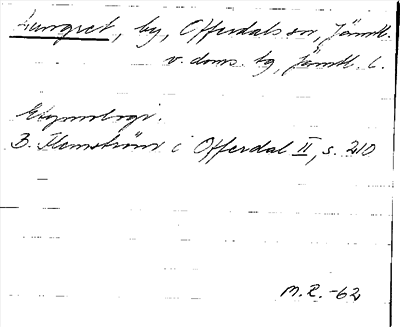 Rungret, by, Offerdals sn, Jämtl.
v. doms. tg, Jämtl. l.
Etymologi.
B. Flemström i Offerdal II, s. 210
M.R. -62